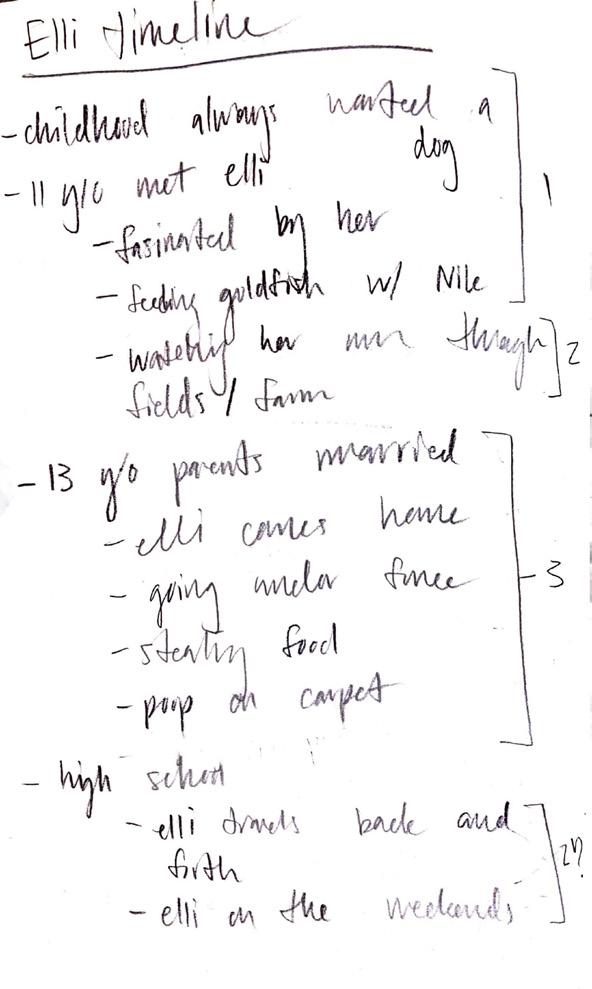 Elli timeline
- childhood always wanted a
dog
1
- 11 y/o met elli
- fasinated by her
- feeding goldfish w/ Nile
- watching her run through
fields / farm
2
- 13 y/o parents married
- elli comes home
- going under fence
- stealing food
- poop on carpet
3
- high school
- elli travels back and
forth
- elli on the weekends
2?